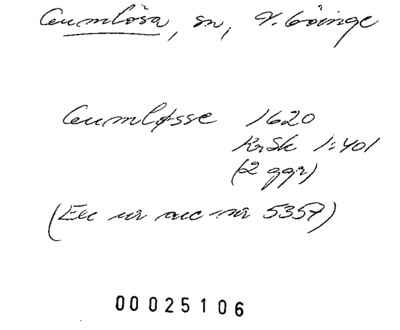 Gumlösa, sn, V. Göinge
Gumløsse 1620
KrSk 1:401
(2 ggr)
(Ex ur acc nr 5357)
00025106